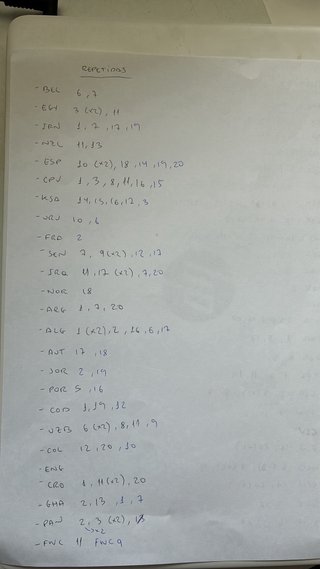 REPETIDAS
- BEL 6, 7
- EGY 3 (x2), 11
- IRN 1, 7, 17, 19
- NZL 11, 13
- ESP 10 (x2), 18, 14, 19, 20
- CPV 1, 3, 8, 11, 16, 15
- KSA 14, 15, 16, 17, 3
- URU 10, 6
- FRA 2
- SEN 7, 9 (x2), 12, 17
- IRQ 11, 17 (x2), 7, 20
- NOR 18
- ARG 1, 7, 20
- ALG 1 (x2), 2, 16, 6, 17
- AUT 17, 18
- JOR 2, 19
- POR 5, 16
- COD 1, 19, 12
- UZB 6 (x2), 8, 11, 9
- COL 12, 20, 10
- ENG
- CRO 1, 11 (x2), 20
- GHA 2, 13, 1, 7
- PAN 2, 3 (x2), 18
x2
- FWC 11 FWC 9